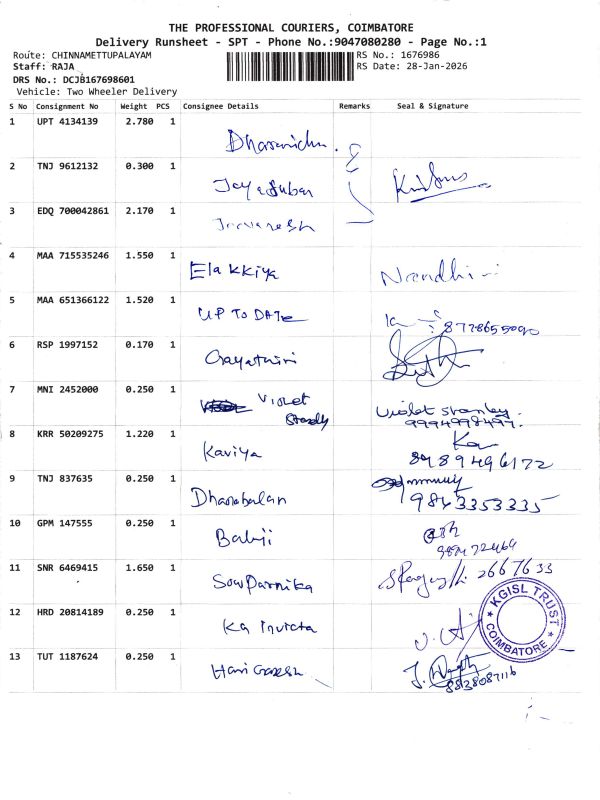 THE PROFESSIONAL COURIERS, COIMBATORE
Delivery Runsheet - SPT - Phone No.:9047080280 - Page No.:1
Route: CHINNAMETTUPALAYAM RS No.: 1676986
Staff: RAJA RS Date: 28-Jan-2026
DRS No.: DCJB167698601
Vehicle: Two Wheeler Delivery
S No Consignment No Weight PCS Consignee Details Remarks Seal & Signature
1 UPT 4134139 2.780 1
2 TNJ 9612132 0.300 1 Jayasubar
3 EDQ 700042861 2.170 1
4 MAA 715535246 1.550 1 Elakkiya Nandhini
5 MAA 651366122 1.520 1 UP TO DATE 8778655090
6 RSP 1997152 0.170 1 Gayathiri
7 MNI 2452000 0.250 1 Violet Violet Stanley
Standly 9994998497.
8 KRR 50209275 1.220 1 Kaviya Ka
8989496172
9 TNJ 837635 0.250 1 Dhanabalan 9843353335
10 GPM 147555 0.250 1 Babji
11 SNR 6469415 1.650 1 Sowparnika 2667633
12 HRD 20814189 0.250 1 Ka Invicta
13 TUT 1187624 0.250 1 Hari Ganesh
8838087116
KGISL TRUST
COIMBATORE